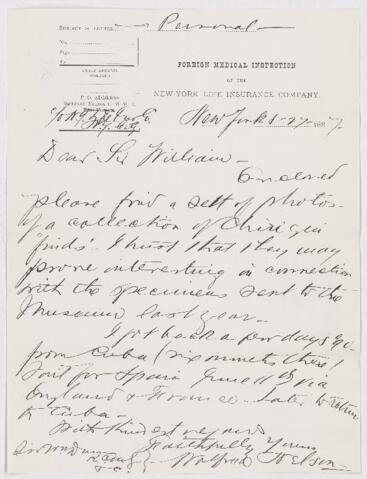 Personal
SUBJECT OF LETTER.
No.
Page
To
FOREIGN MEDICAL INSPECTION
OF THE
NEW-YORK LIFE INSURANCE COMPANY.
P. O. ADDRESS
New York 5-27-1887.
N.Y. City
Dear Sir William -
Enclosed
please find a sett of photos-
of a collection of Chiriqui
'finds'. I trust that they may
prove interesting in connection
with the specimens sent to the
Museum last year-
I got back a few days ago
from Cuba (six months there)
Sail for Spain via
England & France - Later to return
to Cuba -
With kindest regards
Faithfully Yours
Wolfred Nelson
Sir Wm Dawson